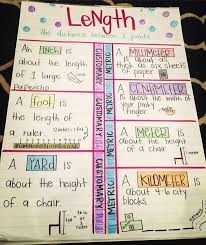 LENGTH
the distance between 2 points
An INCH is
about the length
of 1 large
paperclip
CUSTOMARY
METRIC
A MILLIMETER
is about as
thick as six sheets
of paper
A foot is
the length of
a ruler.
CUSTOMARY
METRIC
A CENTIMETER
is about the width of
your pinky
finger.
A METER is
about the height
of a chair.
A YARD is
about the height
of a chair.
CUSTOMARY
METRIC
A KILOMETER is
about 4-6 city
blocks.